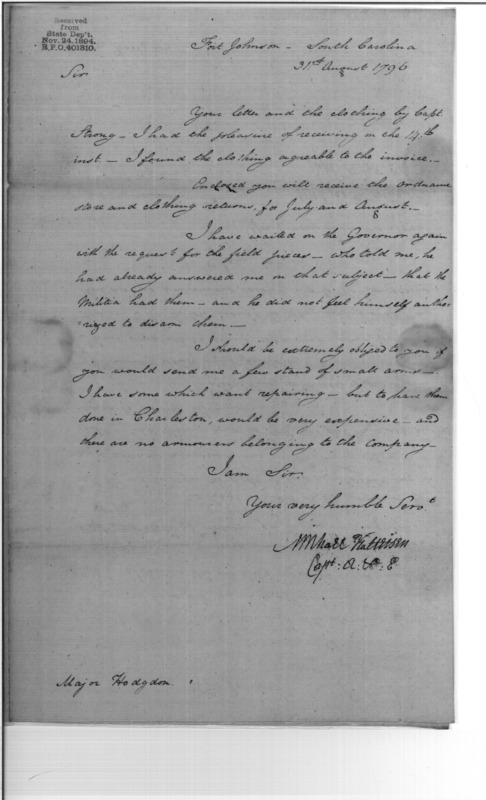 Received
from
State Dep't.
Nov. 24. 1894.
R.P.O. 401310.
Fort Johnson - South Carolina
31st August 1796
Sir
Your letter and the clothing by Capt
Strong - I had the pleasure of receiving on the 14th
inst - I found the clothing agreable to the invoice -
Enclosed you will receive the ordnance
store and clothing returns, for July and August -
I have waited on the Governor again
with the request for the field pieces - who told me, he
had already answered me on that subject - that the
Militia had them - and he did not feel himself autho
rized to disarm them -
I should be extremely obliged to you if
you would send me a few stand of small arms -
I have some which want repairing - but to have them
done in Charleston, would be very expensive - and
there are no armourers belonging to the company -
I am Sir.
Your very humble Servt
Michael Kalteisen
Capt: A: & E
Major Hodgdon